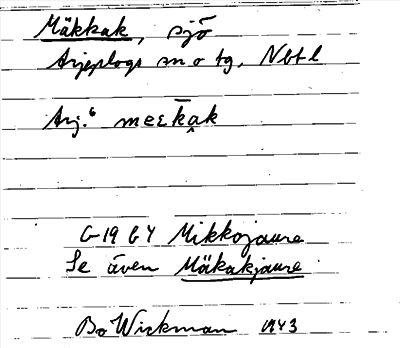 Mäkkak, sjö
Arjeplogs sn o tg, Nbtl
Arj.⁶ meεk̄a̭k
G-19 64 Mikkojaure
Se även Mäkakjaure
Bo Wickman 1943